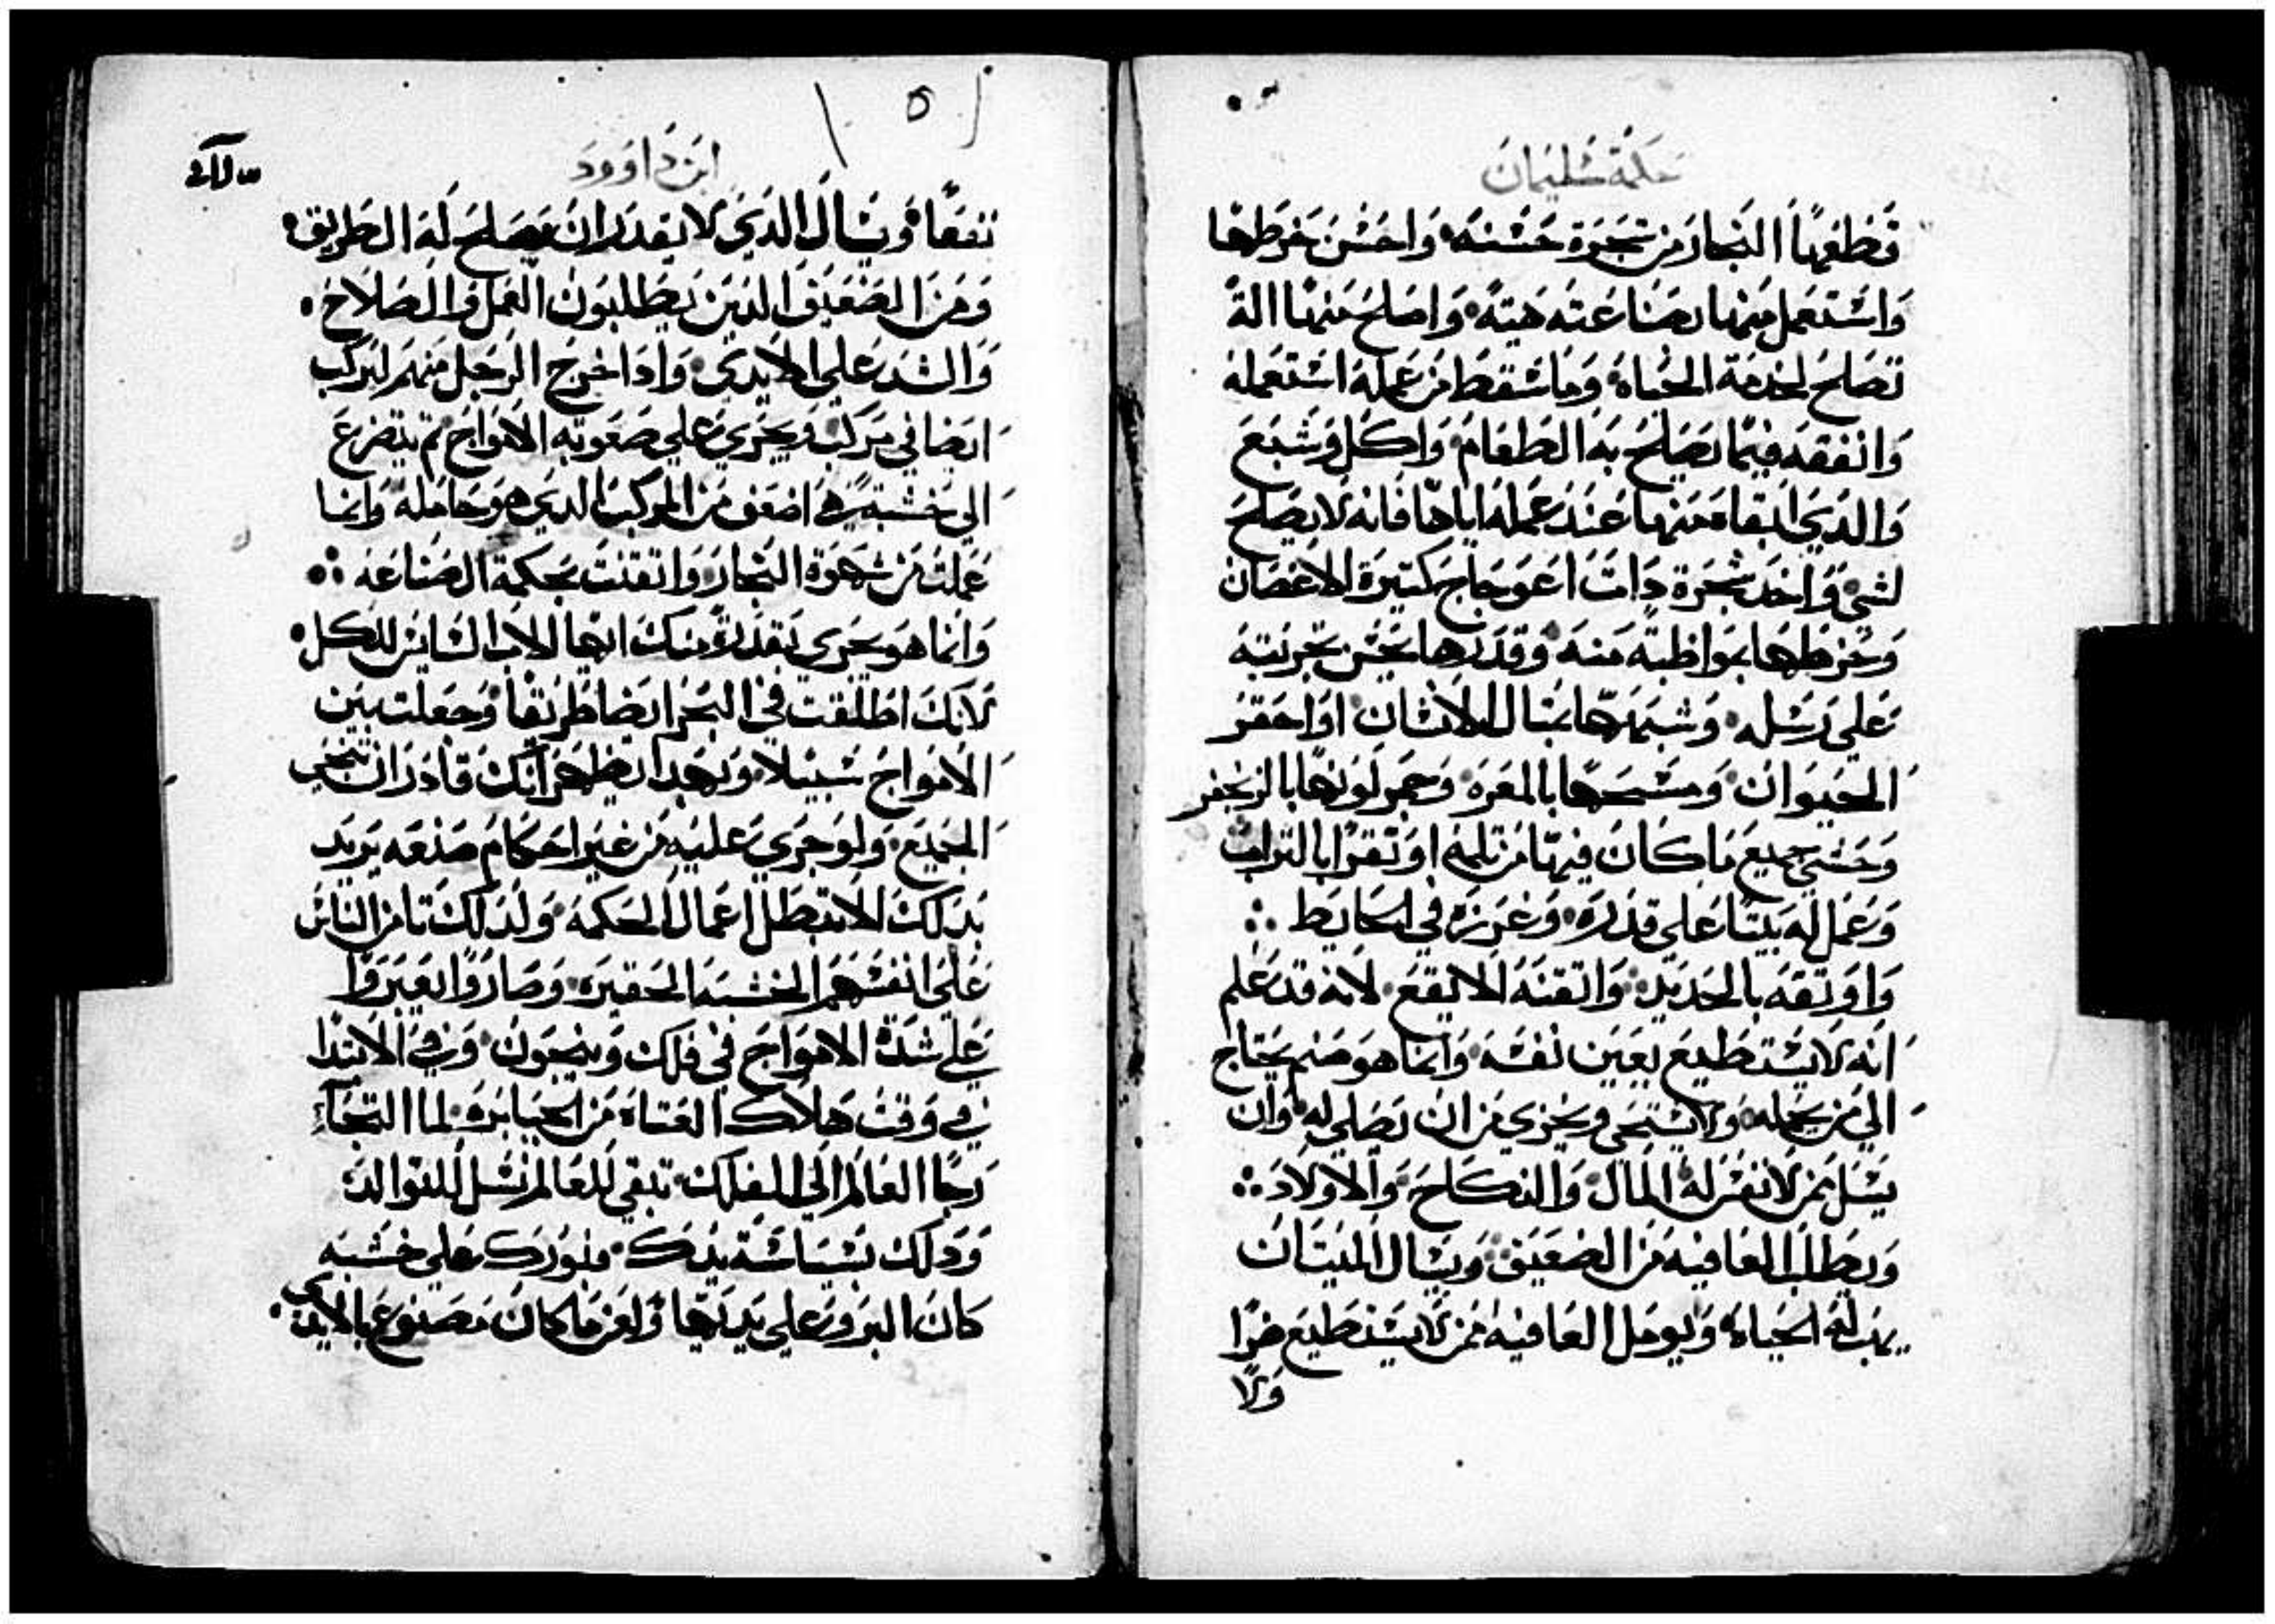 حكمة سليمان
قطعها النجار من شجرة حسنه واحسن خرطها
واستعمل منها بصناعته هيته واصلح منها الة
تصلح لخدمة الحياه وما سقط من عمله استعمله
وانفقه فيما يصلح به الطعام واكل وشبع
والدي ابقاه منها عند عمله اياها فانه لا يصلح
لشي واخد شجرة دات اعوجاج كتيرة الاغصان
وخرطها بمواظبة منه وقدرها بحسن تجربته
علي رسله وشبهها بمتال الانسان او احقر
الحيوان ومسحها بالمغره وحمر لونها بالزنجفر
وحشي جميع ما كان فيها من تلمه او تقرا بالتراب
وعمل له بيتا علي قدره وغرزه في الحايط
واوتقه بالحديد واتقنه الا يقع لانه قد علم
انه لا يستطيع يعين نفسه وانما هو صنم يحتاج
الي من يحمله ولا يستحي ويخزي من ان يصلي له وان
يسل من لا نفس له المال والنكاح والاولاد
ويطلب العافيه من الضعيف ويسال الميت ان
يهب له الحياه ويومل العافيه ممن لا يستطيع ضرا
ولا
ابن داوود
نفعا ويسال الدي لا يقدر ان يصلح له الطريق
ومن الضعيف الدين يطلبون العمل والصلاح
والشد علي الايدي وادا خرج الرجل منهم ليركب
ايضا في مركب ويجري علي صعوبه الامواج تم يتضرع
الي خشبة هي اضعف من المركب الدي هو حامله وانما
عملت من شهوة النجار واتقنت بحكمة الصناعه
وانما هو يجري بقدرة منك ايها الاب السايس للكل
لانك اطلقت في البحر ايضا طريقا وجعلت بين
الامواج سبيلا وبهدا يظهر انك قادر ان تنجي
الجميع ولو جري عليه من غير احكام صنعه يريد
بدلك الا تبطل اعمال الحكمه ولدلك تامن الناس
علي انفسهم الخشبه الحقيره وصاروا يعبروا
علي شدة الامواج في فلك وينجون وفي الابتدا
في وقت هلاك العتاه من الجبابره لما التجاء
رجا العالم الي الفلك تبقي للعالم نسل للتوالد
ودلك بسياسة يدك فبوركت علي خشبه
كان البر وعلي يديها واعز ما كان مصنوع بالايدي